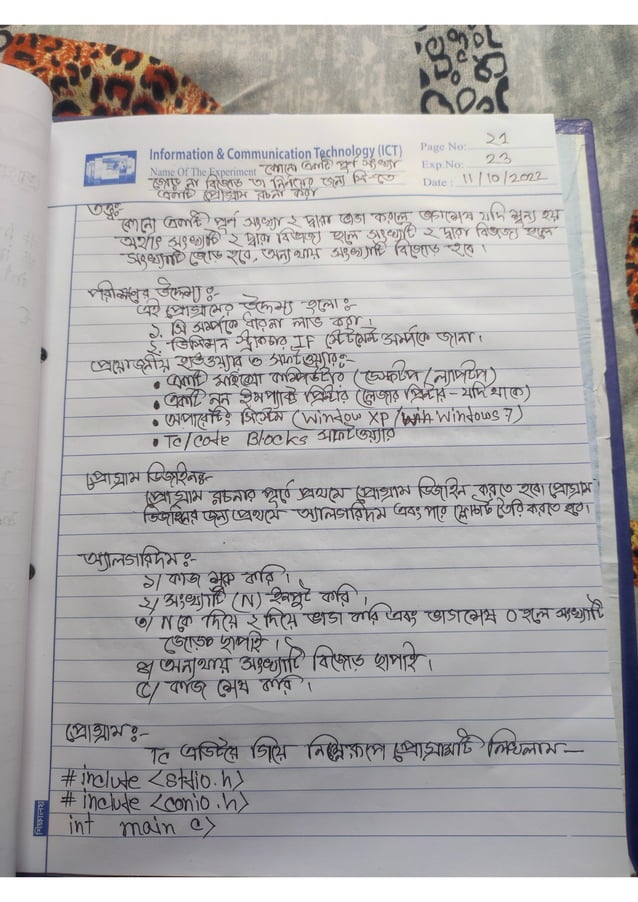 Information & Communication Technology (ICT)
Page No: 21
Name Of The Experiment কোনো একটি পূর্ণ সংখ্যা
Exp.No: 23
জোড় না বিজোড় তা নির্ণয়ের জন্য সি-তে
Date: 11/10/2022
একটি প্রোগ্রাম রচনা করা
তত্ত্বঃ
কোনো একটি পূর্ণ সংখ্যা ২ দ্বারা ভাগ করলে ভাগশেষ যদি শূন্য হয়
অর্থাৎ সংখ্যাটি ২ দ্বারা বিভাজ্য হলে সংখ্যাটি ২ দ্বারা বিভাজ্য হলে
সংখ্যাটি জোড় হবে, অন্যথায় সংখ্যাটি বিজোড় হবে।
পরীক্ষণের উদ্দেশ্য :-
এই প্রোগ্রামের উদ্দেশ্য হলো :-
১. সি সম্পর্কে ধারনা লাভ করা।
২. ডিসিশন স্ট্রাকচার IF স্টেটমেন্ট সম্পর্কে জানা।
প্রয়োজনীয় হার্ডওয়্যার ও সফটওয়্যার:-
• একটি মাইক্রো কম্পিউটার (ডেস্কটপ / ল্যাপটপ)
• একটি নন ইমপ্যাক্ট প্রিন্টার (লেজার প্রিন্টার - যদি থাকে)
• অপারেটিং সিস্টেম (Window XP / Windows 7)
• Tc/code Blocks সফটওয়্যার
প্রোগ্রাম ডিজাইনঃ-
প্রোগ্রাম রচনার পূর্বে প্রথমে প্রোগ্রাম ডিজাইন করতে হবে। প্রোগ্রাম
ডিজাইনের জন্য প্রথমে অ্যালগারিদম এবং পরে ফ্লোচার্ট তৈরি করতে হবে।
অ্যালগারিদম :-
১/ কাজ শুরু করি।
২/ সংখ্যাটি (N) ইনপুট করি।
৩/ N কে দিয়ে ২ দিয়ে ভাগ করি এবং ভাগশেষ 0 হলে সংখ্যাটি
জোড় ছাপাই।
৪/ অন্যথায় সংখ্যাটি বিজোড় ছাপাই।
৫/ কাজ শেষ করি।
প্রোগ্রাম :-
Tc এডিটরে গিয়ে নিম্নরূপে প্রোগ্রামটি লিখলাম —
# include <stdio.h>
# include <conio.h>
int main c>